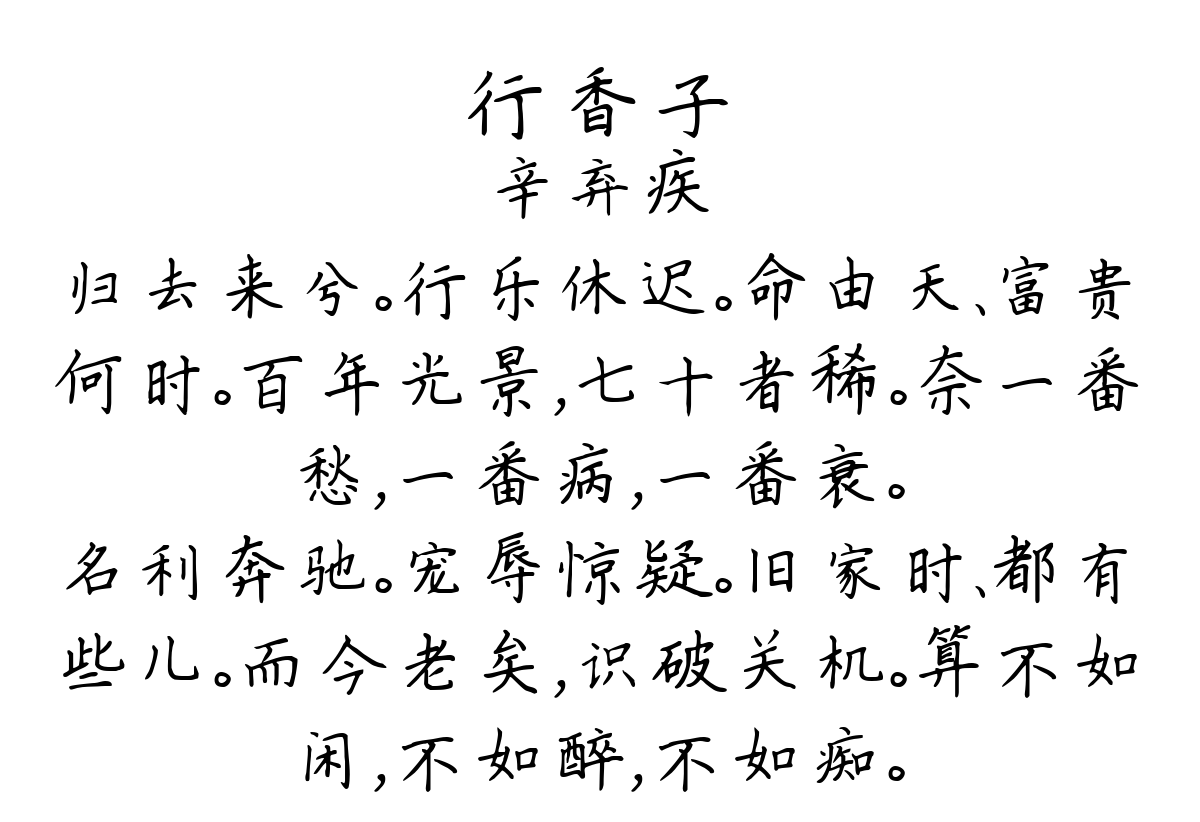 行香子
辛弃疾
归去来兮。行乐休迟。命由天、富贵
何时。百年光景,七十者稀。奈一番
愁,一番病,一番衰。
名利奔驰。宠辱惊疑。旧家时、都有
些儿。而今老矣,识破关机。算不如
闲,不如醉,不如痴。